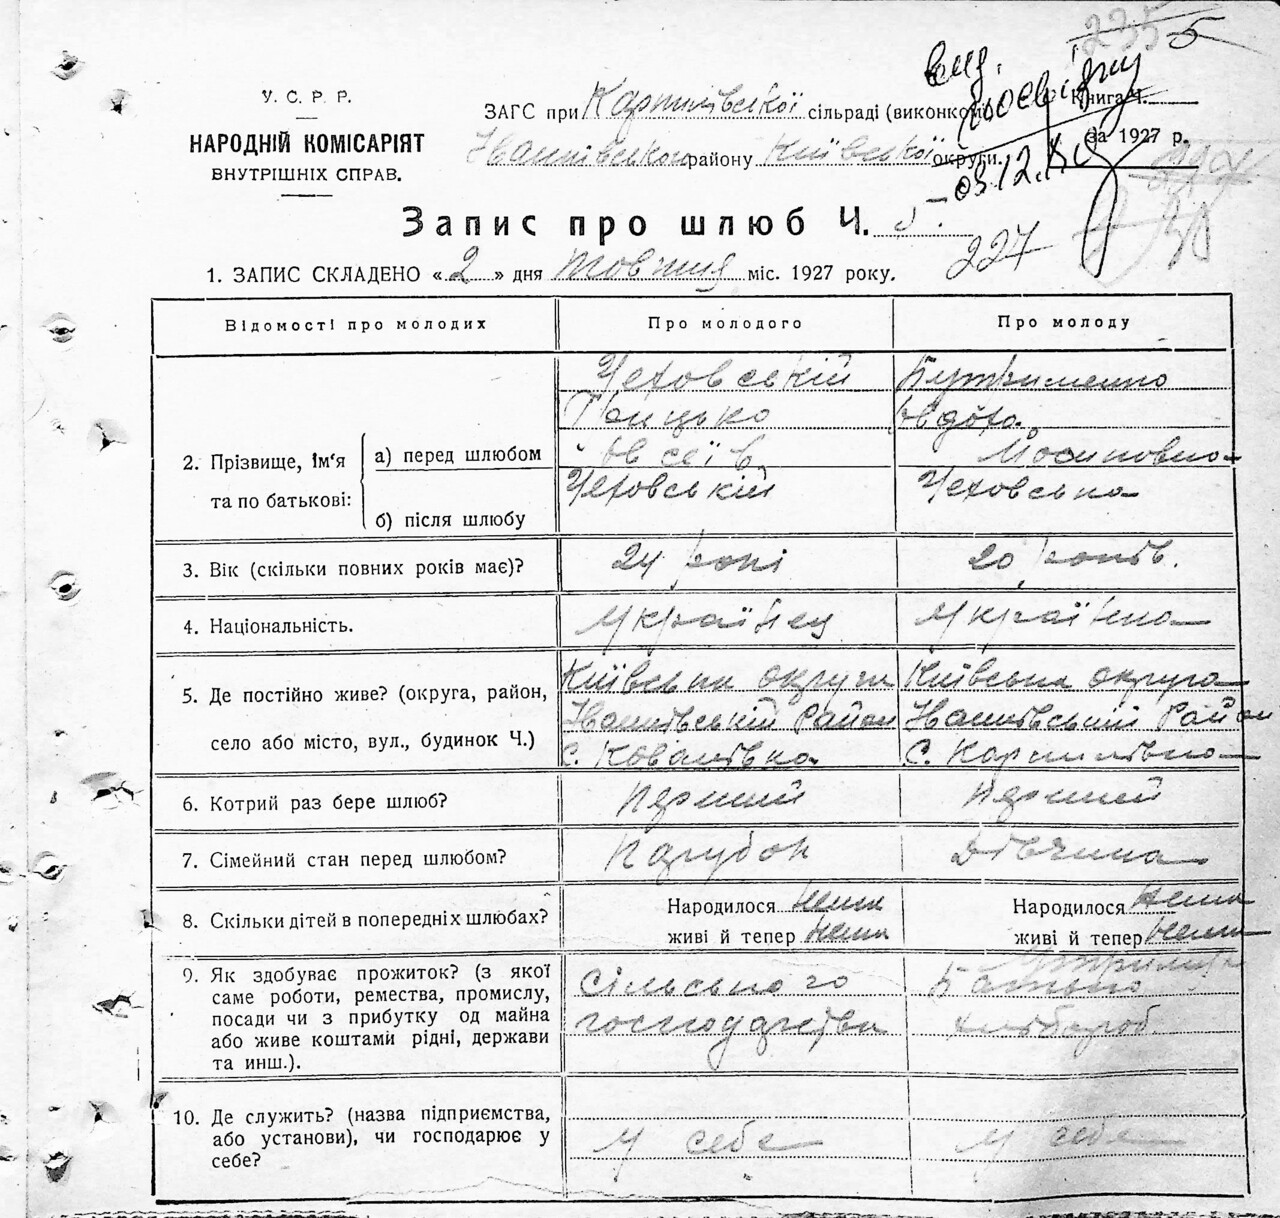 235 5
У. С. Р. Р.
НАРОДНІЙ КОМІСАРІЯТ
ВНУТРІШНІХ СПРАВ.
ЗАГС при Карпилівської сільраді (виконкомі)
Іванківського району Київської округи.
Книга Ч.
За 1927 р.
вид.
03.12.
227
Запис про шлюб Ч. 5.
1. ЗАПИС СКЛАДЕНО «2» дня Жовтня міс. 1927 року.
Відомості про молодих Про молодого Про молоду
2. Прізвище, ім'я та по батькові:
а) перед шлюбом
Чеховський Грицько Овсеїв
Бутрименко Овдоха Йосиповна
б) після шлюбу
Чеховській Чеховська
3. Вік (скільки повних років має)? 24 роки 20 років.
4. Національність. Українец Українка
5. Де постійно живе? (округа, район, село або місто, вул., будинок Ч.)
Київська округа Іванківській Район с. Коваливка
Київська округа Іванківський Район с. Карпилівка
6. Котрий раз бере шлюб? Перший Перший
7. Сімейний стан перед шлюбом? Парубок Дівчина
8. Скільки дітей в попередніх шлюбах? Народилося Нема Народилося Нема
живі й тепер Нема живі й тепер Нема
9. Як здобуває прожиток? (з якої
саме роботи, ремества, промислу,
посади чи з прибутку од майна
або живе коштами рідні, держави
та инш.).
Сільського
господарства
Батько
хлібороб.
10. Де служить? (назва підприємства,
або установи), чи господарює у
себе?
У себе У себе